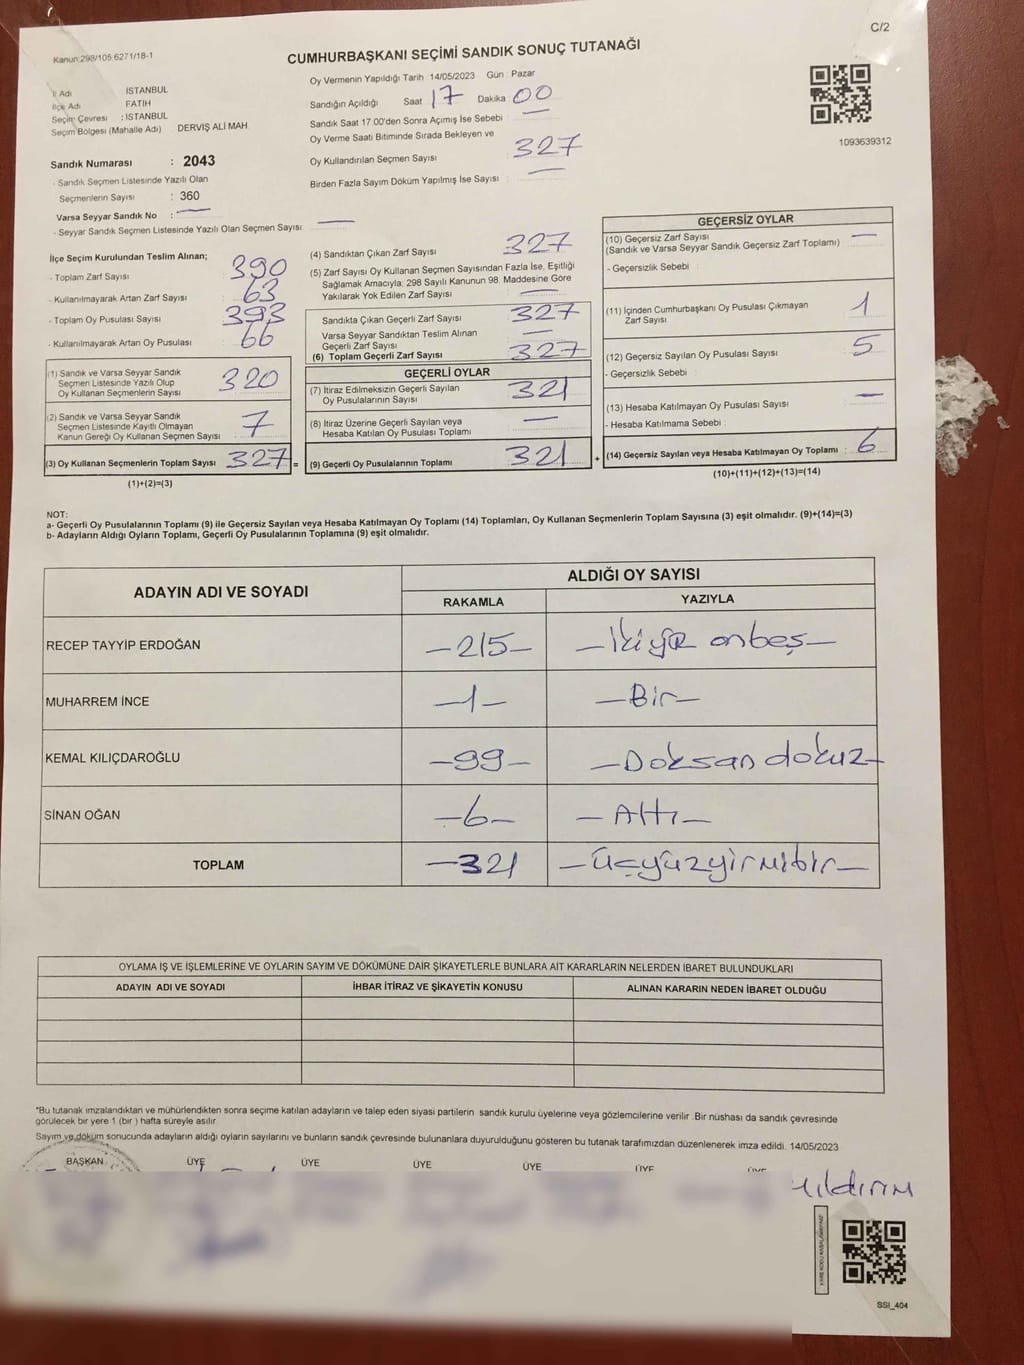 C/2
Kanun:298/105 6271/18-1
CUMHURBAŞKANI SEÇİMİ SANDIK SONUÇ TUTANAĞI
İl Adı İSTANBUL
İlçe Adı FATİH
Seçim Çevresi : İSTANBUL
Seçim Bölgesi (Mahalle Adı) DERVİŞ ALİ MAH.
Sandık Numarası : 2043
- Sandık Seçmen Listesinde Yazılı Olan
Seçmenlerin Sayısı : 360
Varsa Seyyar Sandık No : —
- Seyyar Sandık Seçmen Listesinde Yazılı Olan Seçmen Sayısı: —
Oy Vermenin Yapıldığı Tarih : 14/05/2023 Gün : Pazar
Sandığın Açıldığı Saat 17 Dakika 00
Sandık Saat 17.00'den Sonra Açımış İse Sebebi : —
Oy Verme Saati Bitiminde Sırada Bekleyen ve
Oy Kullandırılan Seçmen Sayısı : 327
Birden Fazla Sayım Döküm Yapılmış İse Sayısı : —
1093639312
İlçe Seçim Kurulundan Teslim Alınan;
- Toplam Zarf Sayısı : 390
- Kullanılmayarak Artan Zarf Sayısı : 63
- Toplam Oy Pusulası Sayısı : 393
- Kullanılmayarak Artan Oy Pusulası : 66
(1) Sandık ve Varsa Seyyar Sandık
Seçmen Listesinde Yazılı Olup
Oy Kullanan Seçmenlerin Sayısı : 320
(2) Sandık ve Varsa Seyyar Sandık
Seçmen Listesinde Kayıtlı Olmayan
Kanun Gereği Oy Kullanan Seçmen Sayısı : 7
(3) Oy Kullanan Seçmenlerin Toplam Sayısı : 327 =
(1)+(2)=(3)
(4) Sandıktan Çıkan Zarf Sayısı : 327
(5) Zarf Sayısı Oy Kullanan Seçmen Sayısından Fazla İse, Eşitliği
Sağlamak Amacıyla; 298 Sayılı Kanunun 98. Maddesine Göre
Yakılarak Yok Edilen Zarf Sayısı : —
Sandıkta Çıkan Geçerli Zarf Sayısı : 327
Varsa Seyyar Sandıktan Teslim Alınan
Geçerli Zarf Sayısı : —
(6) Toplam Geçerli Zarf Sayısı : 327
GEÇERLİ OYLAR
(7) İtiraz Edilmeksizin Geçerli Sayılan
Oy Pusulalarının Sayısı : 321
(8) İtiraz Üzerine Geçerli Sayılan veya
Hesaba Katılan Oy Pusulası Toplamı : —
(9) Geçerli Oy Pusulalarının Toplamı : 321 +
GEÇERSİZ OYLAR
(10) Geçersiz Zarf Sayısı : —
(Sandık ve Varsa Seyyar Sandık Geçersiz Zarf Toplamı)
- Geçersizlik Sebebi :
(11) İçinden Cumhurbaşkanı Oy Pusulası Çıkmayan
Zarf Sayısı : 1
(12) Geçersiz Sayılan Oy Pusulası Sayısı : 5
- Geçersizlik Sebebi :
(13) Hesaba Katılmayan Oy Pusulası Sayısı : —
- Hesaba Katılmama Sebebi :
(14) Geçersiz Sayılan veya Hesaba Katılmayan Oy Toplamı : 6
(10)+(11)+(12)+(13)=(14)
NOT:
a- Geçerli Oy Pusulalarının Toplamı (9) ile Geçersiz Sayılan veya Hesaba Katılmayan Oy Toplamı (14) Toplamları, Oy Kullanan Seçmenlerin Toplam Sayısına (3) eşit olmalıdır. (9)+(14)=(3)
b- Adayların Aldığı Oyların Toplamı, Geçerli Oy Pusulalarının Toplamına (9) eşit olmalıdır.
ADAYIN ADI VE SOYADI ALDIĞI OY SAYISI
RAKAMLA YAZIYLA
RECEP TAYYİP ERDOĞAN —215— —İkiyüz onbeş—
MUHARREM İNCE —1— —Bir—
KEMAL KILIÇDAROĞLU —99— —Doksan dokuz—
SİNAN OĞAN —6— —Altı—
TOPLAM —321 —üçyüzyirmibir—
OYLAMA İŞ VE İŞLEMLERİNE VE OYLARIN SAYIM VE DÖKÜMÜNE DAİR ŞİKAYETLERLE BUNLARA AİT KARARLARIN NELERDEN İBARET BULUNDUKLARI
ADAYIN ADI VE SOYADI İHBAR İTİRAZ VE ŞİKAYETİN KONUSU ALINAN KARARIN NEDEN İBARET OLDUĞU
*Bu tutanak imzalandıktan ve mühürlendikten sonra seçime katılan adayların ve talep eden siyasi partilerin sandık kurulu üyelerine veya gözlemcilerine verilir .Bir nüshası da sandık çevresinde
görülecek bir yere 1 (bir ) hafta süreyle asılır.
Sayım ve döküm sonucunda adayların aldığı oyların sayılarını ve bunların sandık çevresinde bulunanlara duyurulduğunu gösteren bu tutanak tarafımızdan düzenlenerek imza edildi. 14/05/2023
BAŞKAN ÜYE ÜYE ÜYE ÜYE ÜYE ÜYE
Yıldırım
SSI_404